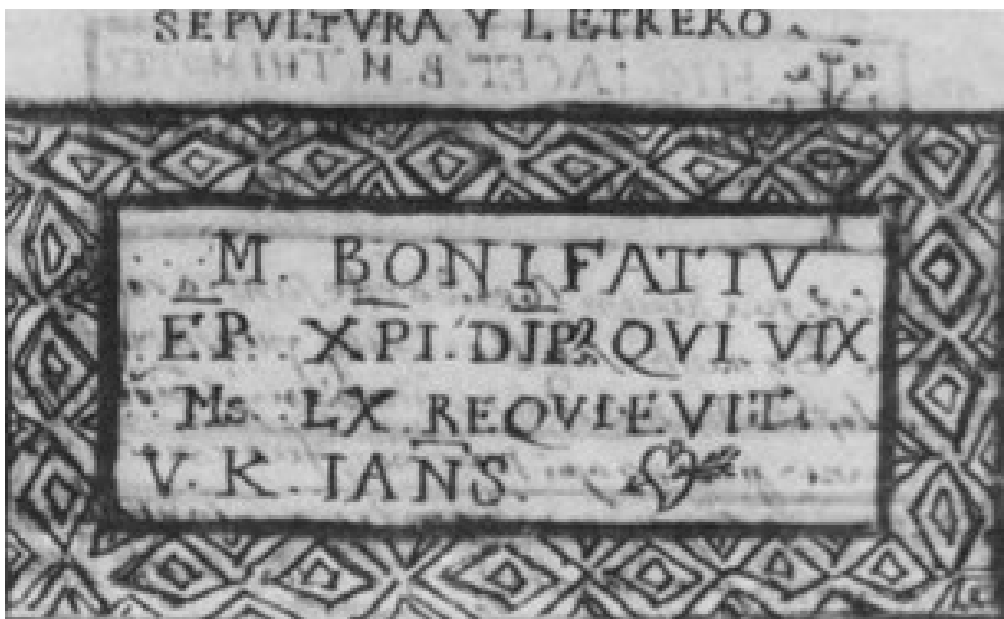 SEPVLTVRA Y LETRERO.
...M. BONIFATIV...
EP. XPI. DIP. QVI VIX
Ms. LX REQVIEVIT.
V. K. IANS.